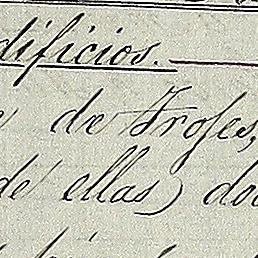 dificios.
de Trojes,
de ellas) do